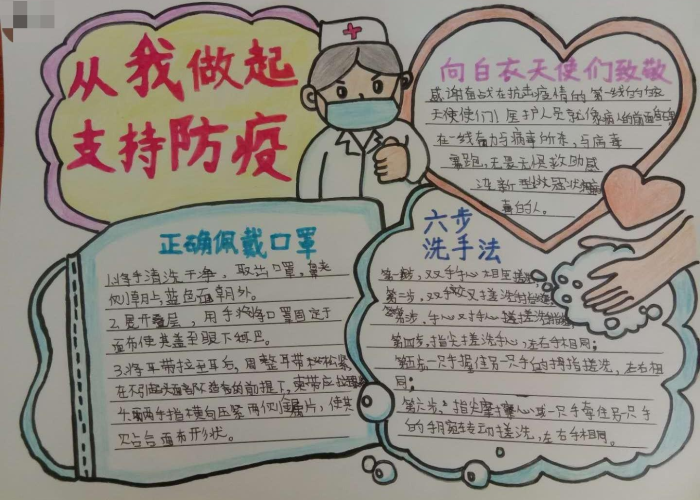 从我做起
支持防疫
向白衣天使们致敬
感谢奋战在抗击疫情的第一线的白衣
天使们!医护人员就像
在一线奋力与病毒所杀,与病毒
赛跑,无畏无惧救助感
染新型冠状
毒的人。
正确佩戴口罩
1.将手清洗干净,取出口罩,鼻夹
侧朝上,蓝色面朝外。
2.展开叠层,用手将口罩固定于
面部使其盖至眼下
3.将耳带拉至耳后,调整耳带松紧,
在不引起头面部不适者的前提下,
4.两手指横向压紧两侧,使其
贴合面部形状。
六步
洗手法
第一步,双手手心相互搓洗
第二步,双手交叉搓洗
手心对手心搓搓洗
第四步,指尖搓洗手心,左右手相同;
第五步一只手握住另一只手的拇指搓洗,左右相
同;
第六步,指尖摩擦掌心或一只手牵住另一只手
的手腕转动搓洗,左右手相同。